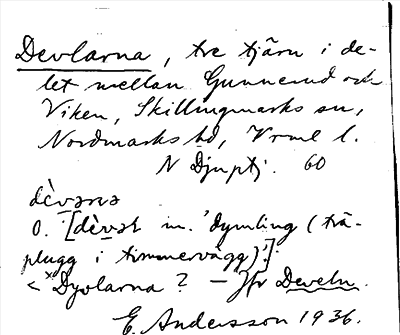 Devlarna, tre tjärn i de-
let mellan Gunnerud och
Viken, Skillingmarks sn,
Nordmarks hd, Vrml l.
N Djuptj. 60
dèvana
O. [dèvəl m. 'dymling (trä-
plugg i timmervägg)'.]
< *Dyvlarna? – Jfr Develn.
E. Andersson 1936.